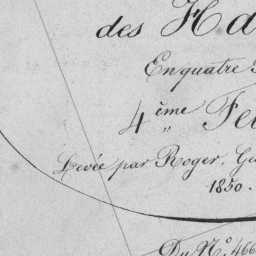 des Ha
En quatre
4ème Fe
Levée par Roger. Gé
1850.
Du N.° 466